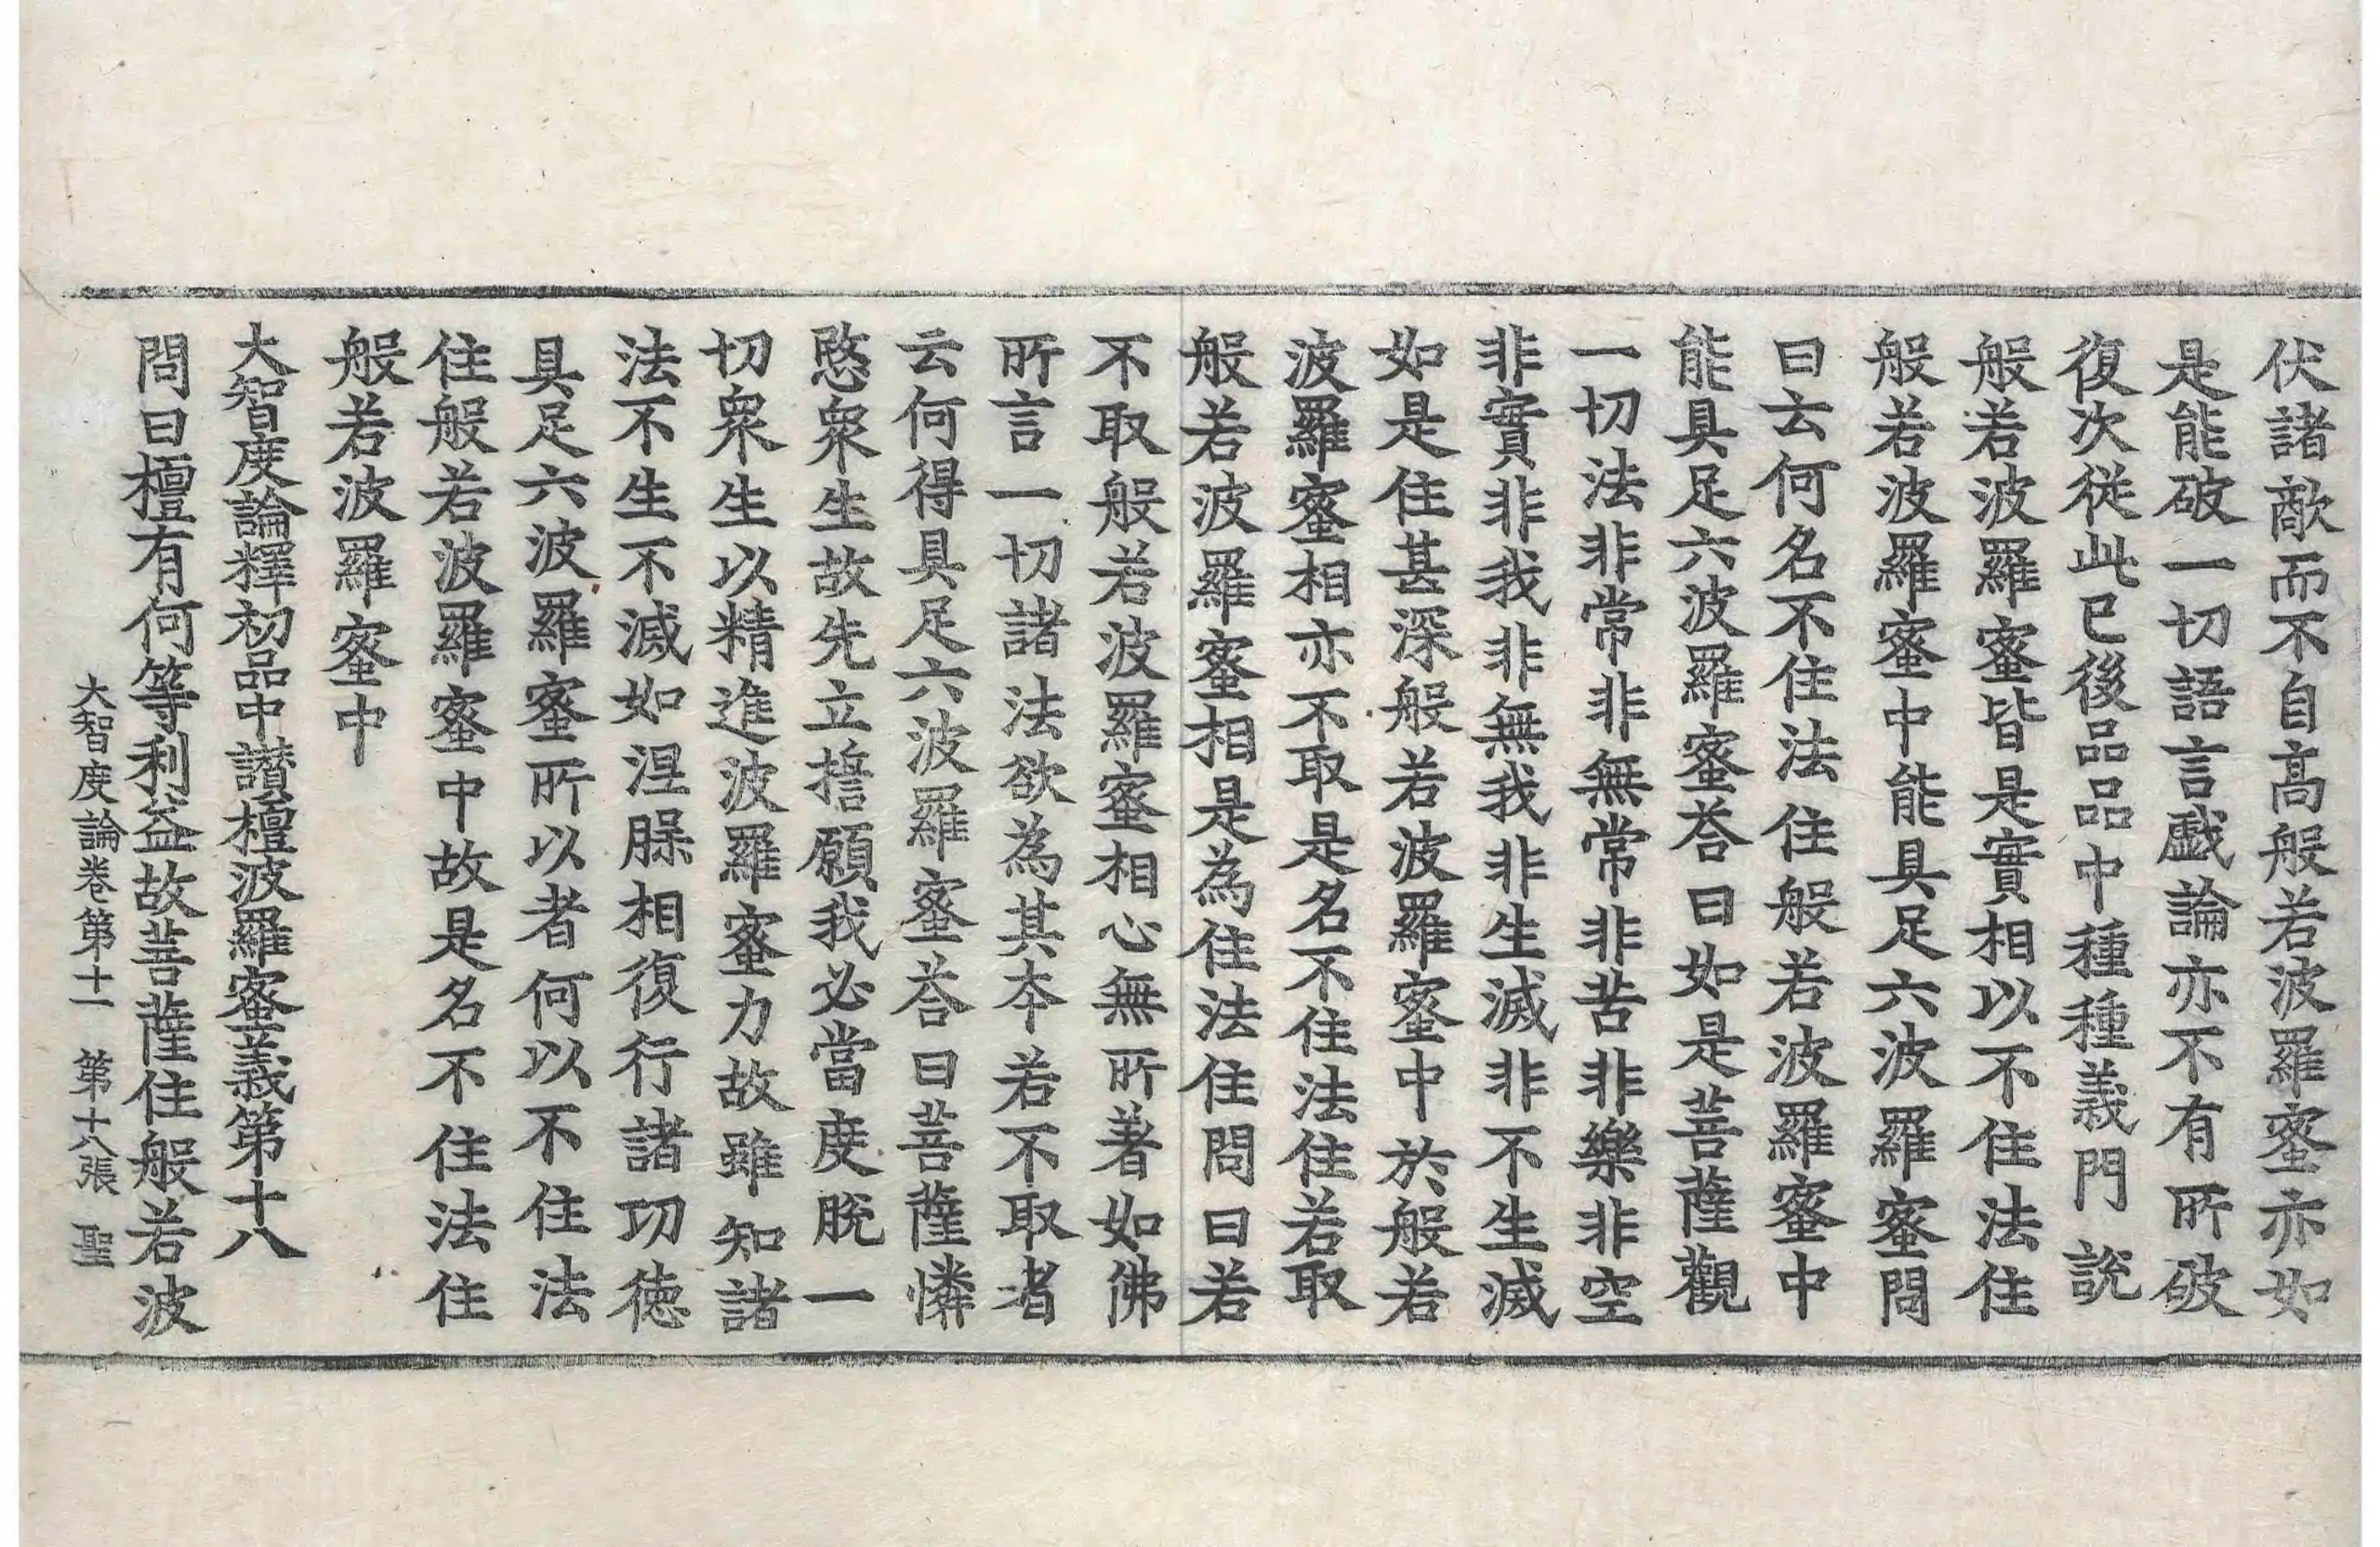 伏諸敵而不自高般若波羅蜜亦如
是能破一切語言戱論亦不有所破
復次從此已後品品中種種義門說
般若波羅蜜皆是實相以不住法住
般若波羅蜜中能具足六波羅蜜問
曰云何名不住法住般若波羅蜜中
能具足六波羅蜜荅曰如是菩薩觀
一切法非常非無常非苦非樂非空
非實非我非無我非生滅非不生滅
如是住甚深般若波羅蜜中於般若
波羅蜜相亦不取是名不住法住若取
般若波羅蜜相是為住法住問曰若
不取般若波羅蜜相心無所著如佛
所言一切諸法欲為其夲若不取者
云何得具足六波羅蜜荅曰菩薩憐
愍衆生故先立誓願我必當度脫一
切衆生以精進波羅蜜力故雖知諸
法不生不滅如涅槃相復行諸功徳
具足六波羅蜜所以者何以不住法
住般若波羅蜜中故是名不住法住
般若波羅蜜中
大智度論釋初品中讃檀波羅蜜義第十八
問曰檀有何等利益故菩薩住般若波
大智度論卷第十一 第十八張 聖